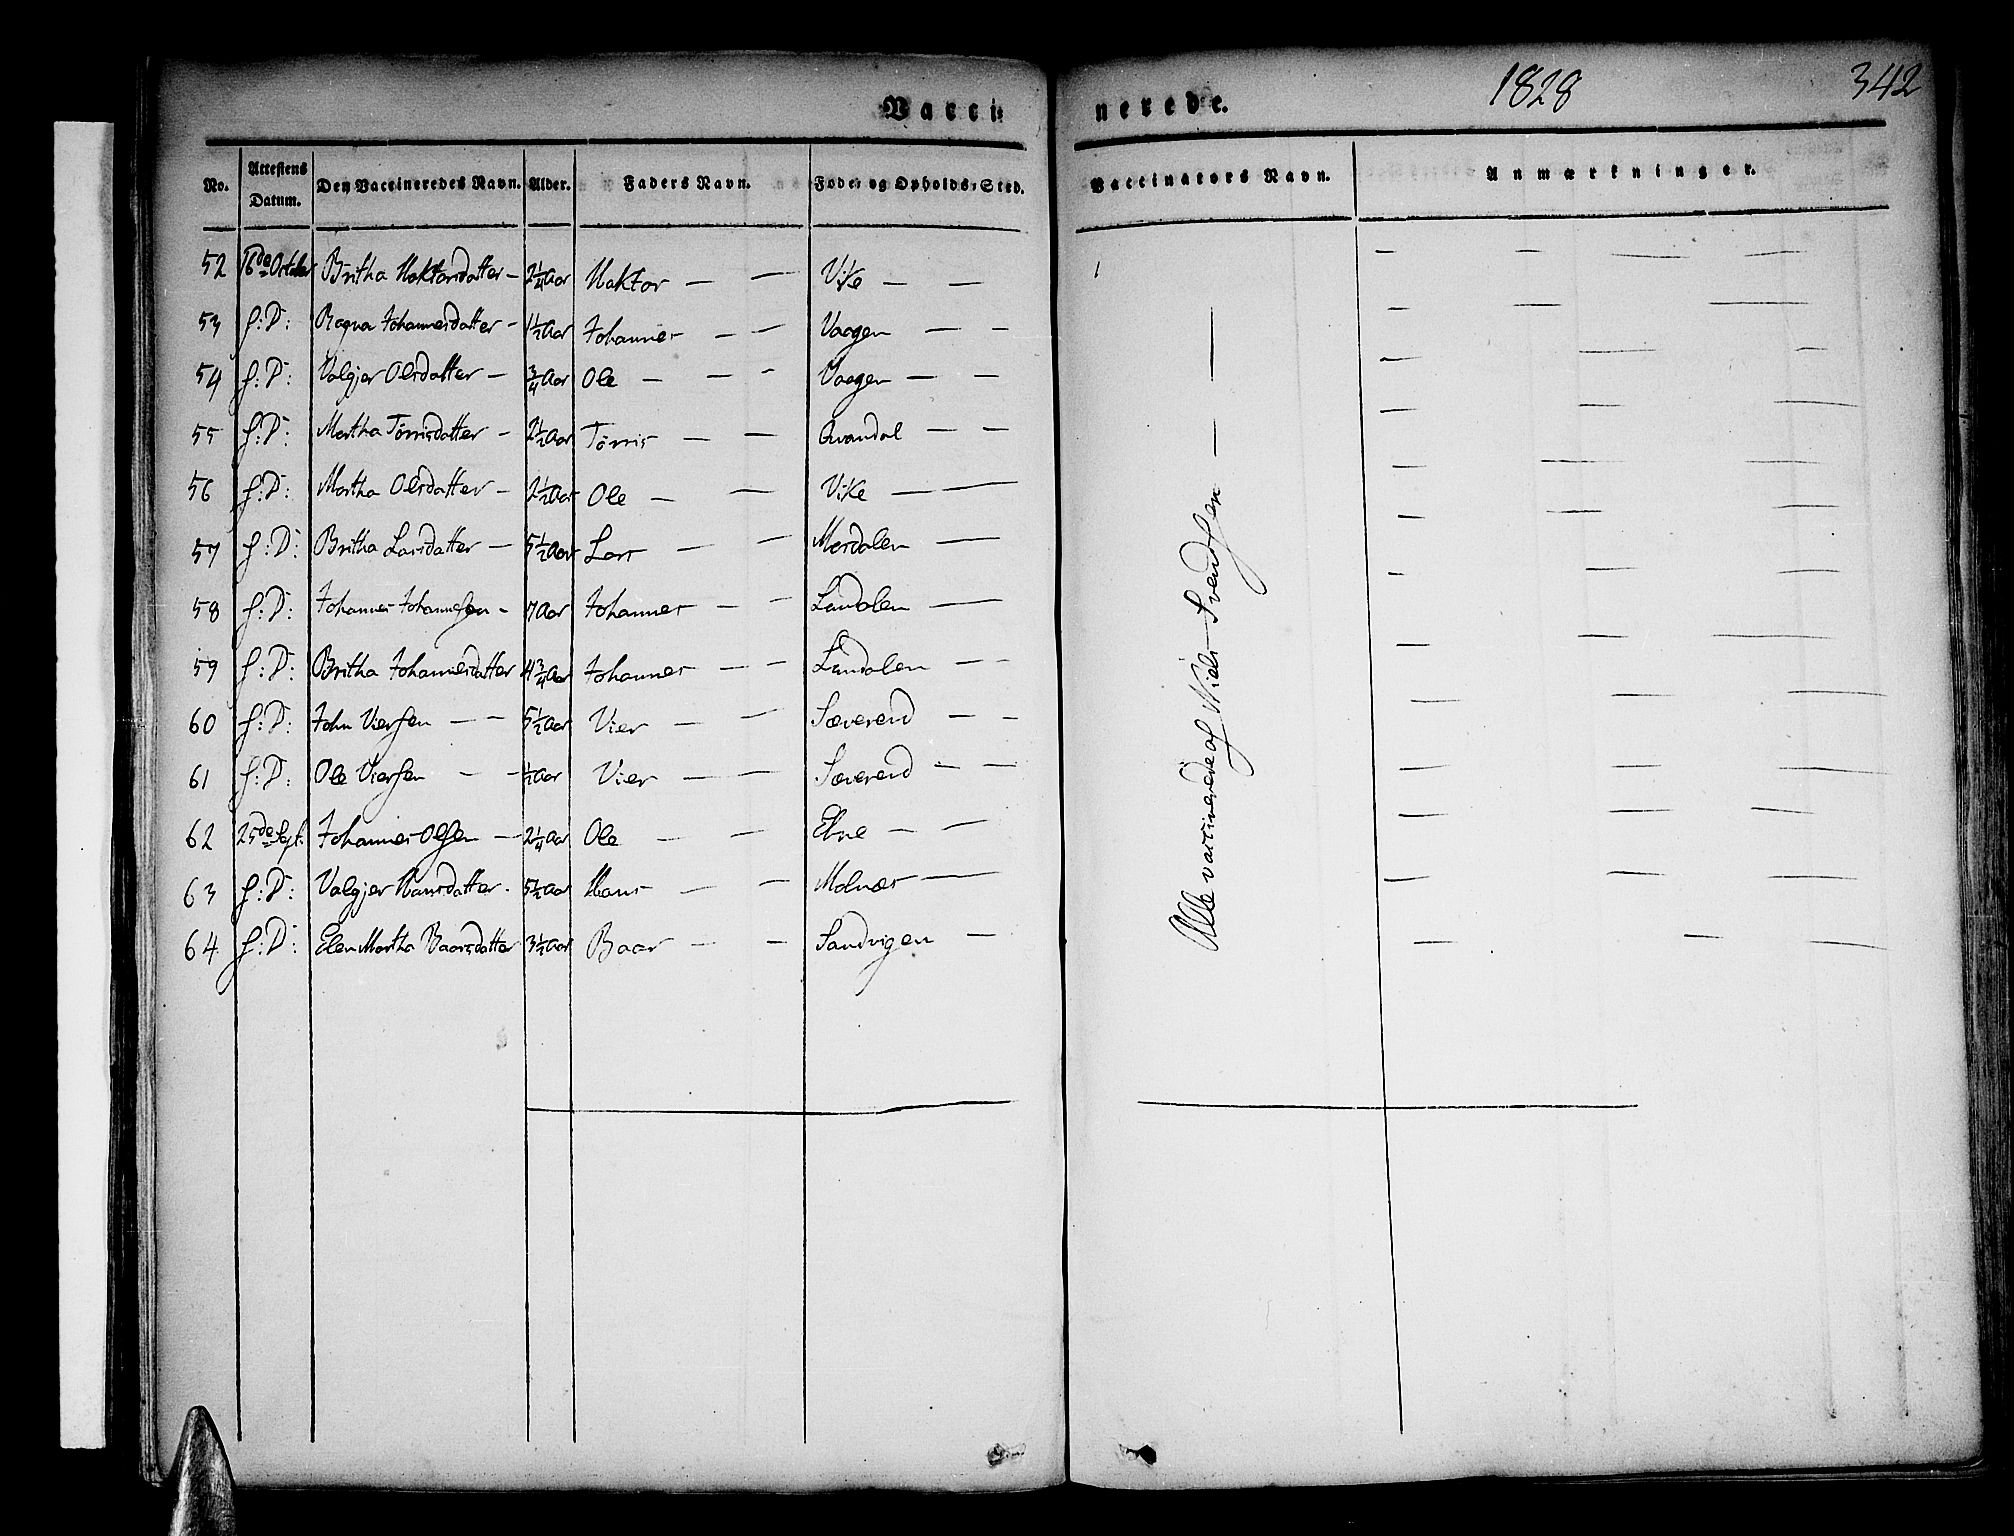 1828
342
Vacci⸗
nerede.
No. Attestens Datum. Den Vaccineredes Navn. Alder. Faders Navn. Føde⸗ og Opholds⸗Sted. Vaccinators Navn. Anmærkninger.
52 16de October Britha Haktorsdatter – 2¼ Aar Haktor — — Vike — —
53 S: D: Ragna Johannesdatter – 1½ Aar Johannes — — Vaagen — —
54 S: D: Valgjer Olsdatter — ¾ Aar Ole — — – Vaagen — —
55 S: D: Martha Tørrisdatter – 2½ Aar Tørris — — Qvandal — —
56 S: D: Martha Olsdatter – 2½ Aar Ole — — Vike — —
57 S: D: Britha Larsdatter — 5½ Aar Lars — — Mosdalen —
58 S: D: Johannes Johannessen – 7 Aar Johannes — — Landalen —
59 S: D: Britha Johannesdatter 4¾ Aar Johannes — — Landalen — —
60 S: D: John Viersen — — 5½ Aar Vier — — Sæverend — —
61 S: D: Ole Viersen — — ½ Aar Vier — — Sæverend — —
62 25de Sept. Johannes Olsen — 2¼ Aar Ole — — Etne — —
63 S: D: Valgjer Hansdatter. 5½ Aar Hans — — Molnæs —
64 S: D: Elen Martha Baarsdatter 3½ Aar Baar — — Sandvigen —
Alle vaccinerede af Niels Svendsen — — —